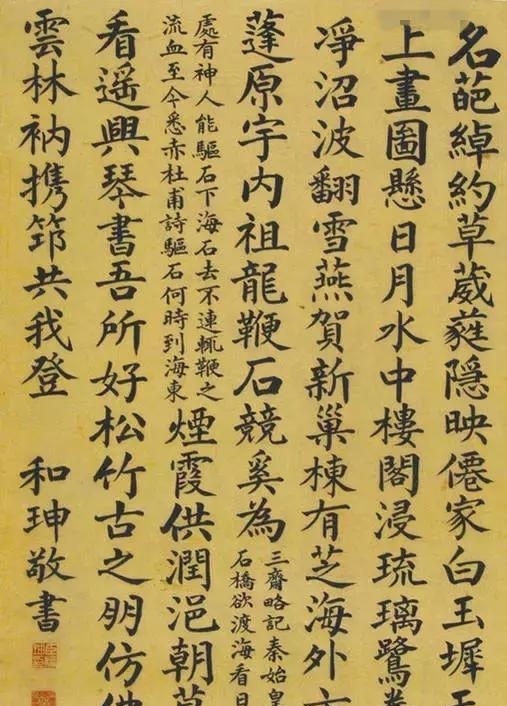 名葩綽約草葳蕤隱映僊家白玉墀
上畫圖懸日月水中樓閣浸琉璃鷺
凈沼波翻雪燕賀新巢棟有芝海外
蓬原宇內祖龍鞭石競奚為
三齋略記秦始皇
石橋欲渡海看日
處有神人能驅石下海石去不速輒鞭之
流血至今悉赤杜甫詩驅石何時到海東
煙霞供潤浥朝
看遙興琴書吾所好松竹古之朋仿
雲林衲携筇共我登 和珅敬書